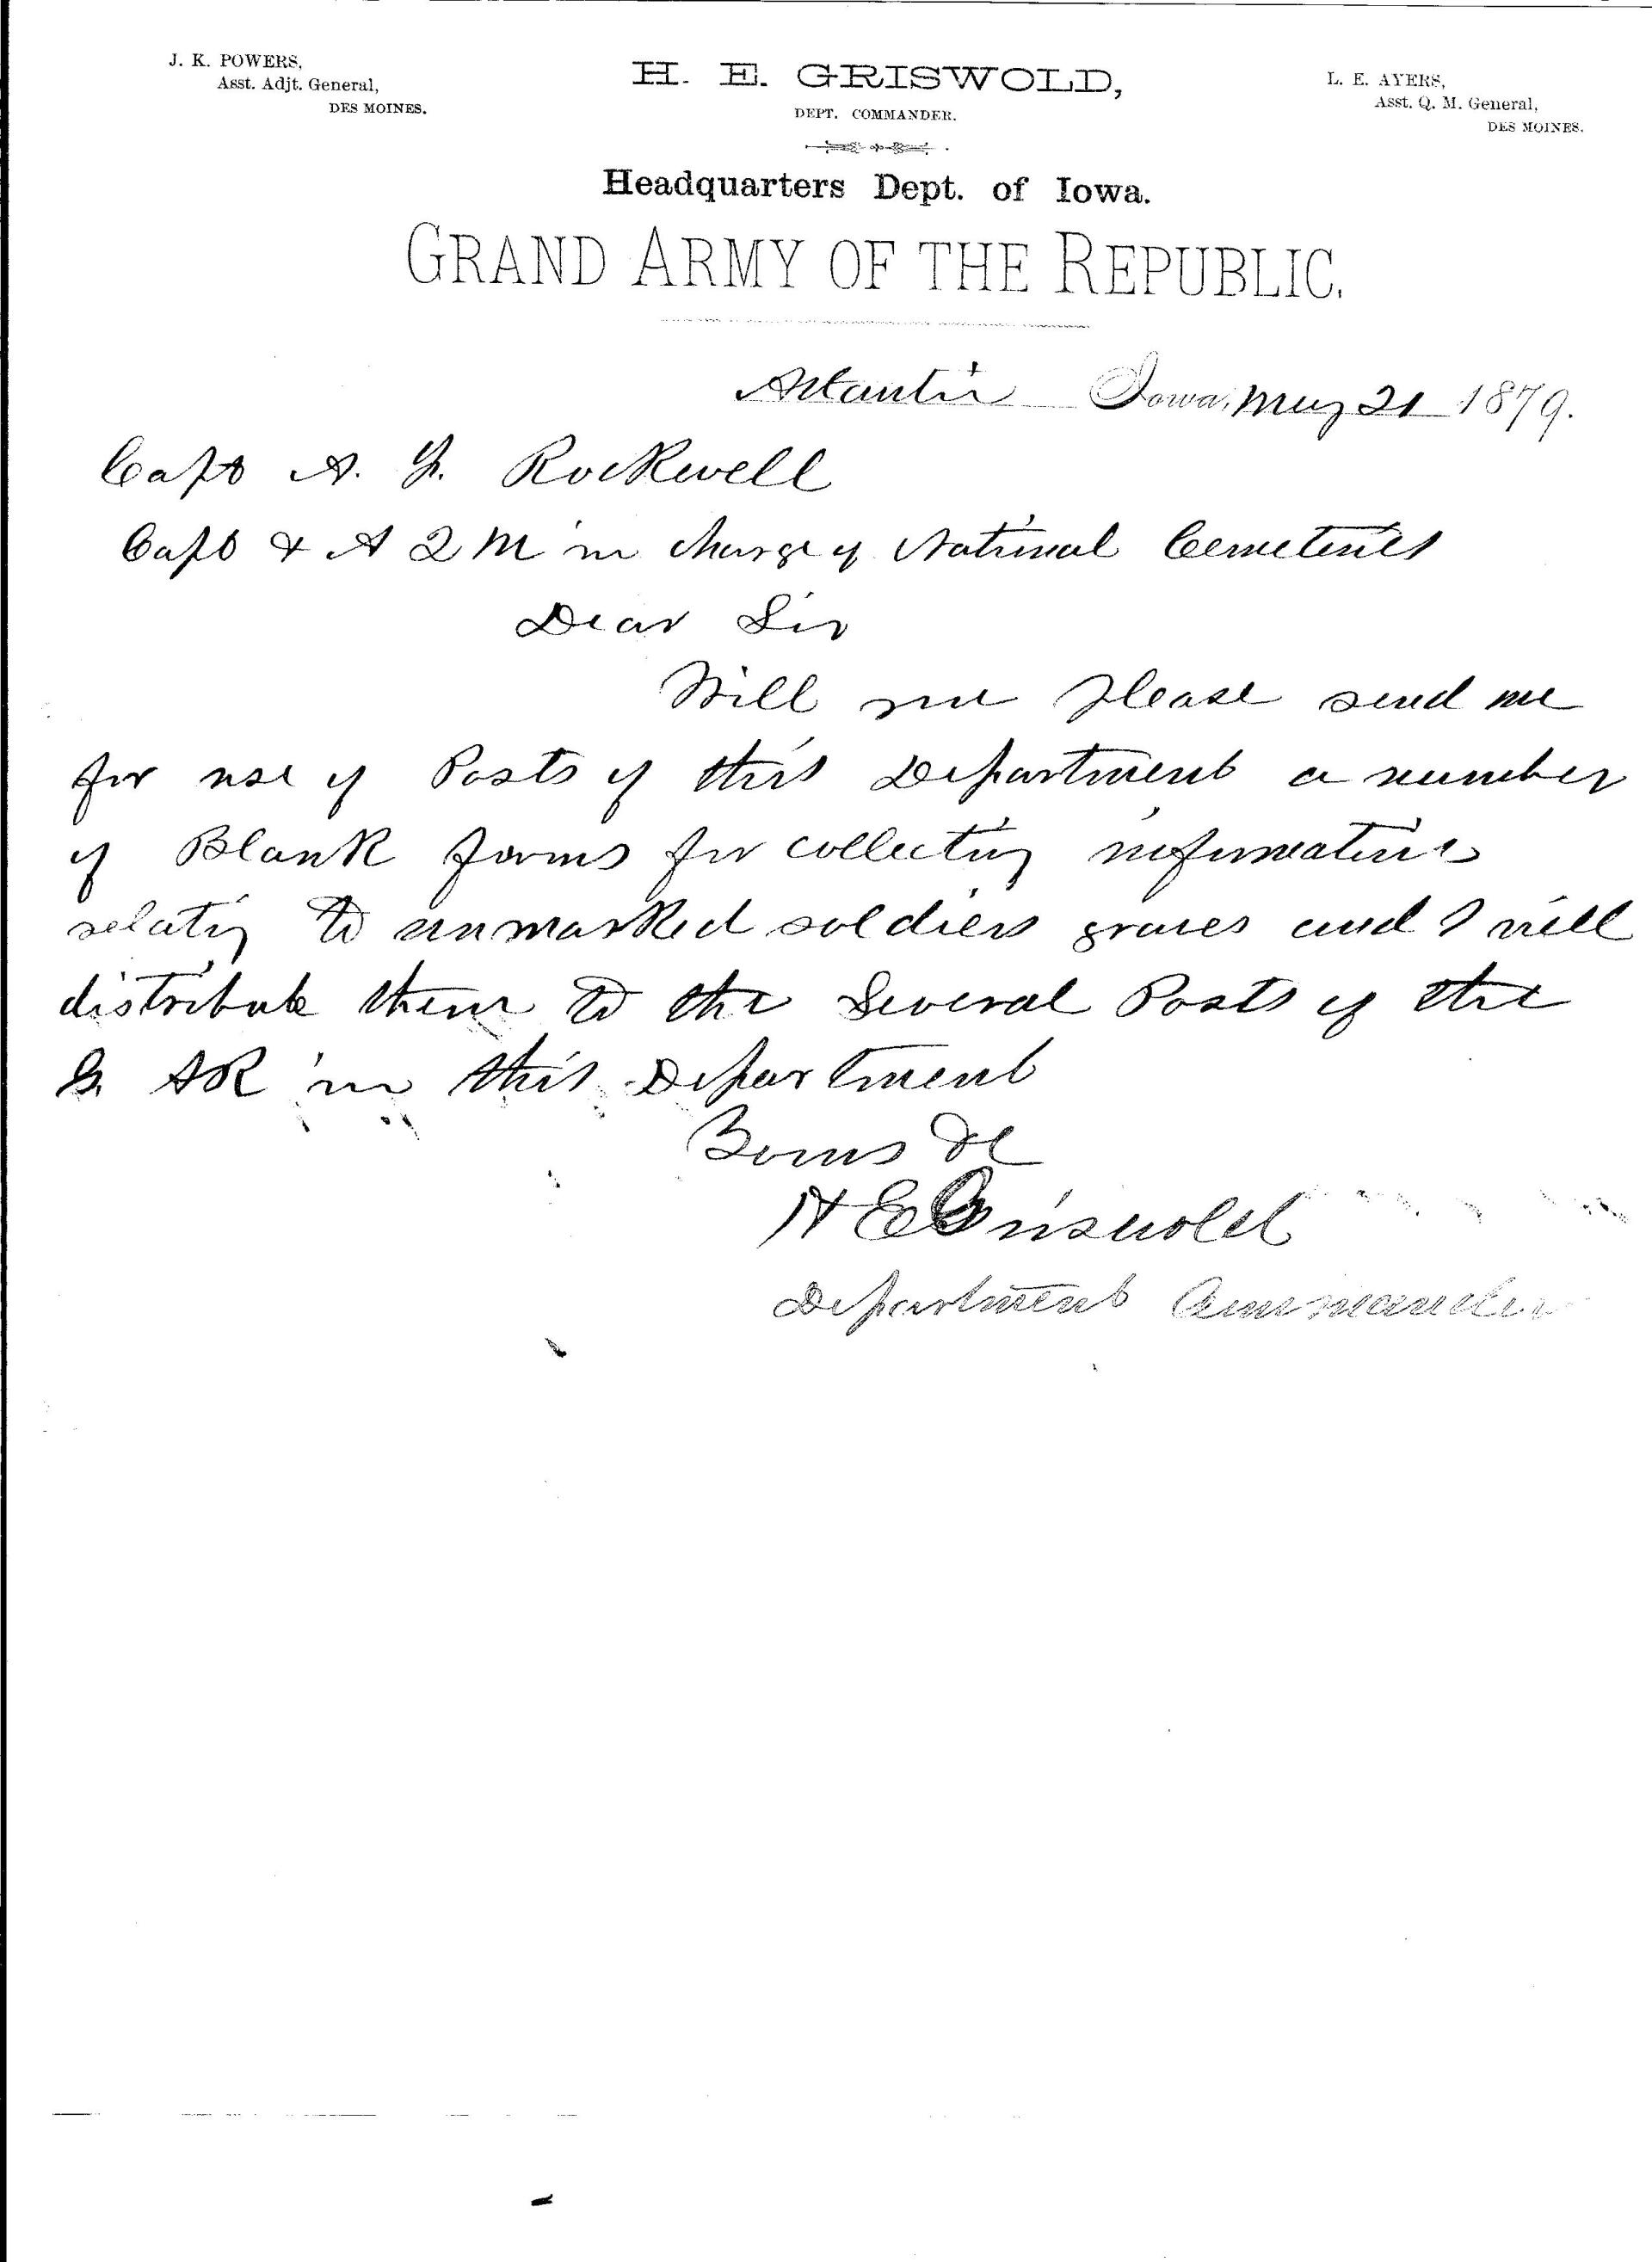 J. K. POWERS,
Asst. Adjt. General,
DES MOINES.
H. E. GRISWOLD,
DEPT. COMMANDER.
L. E. AYERS,
Asst. Q. M. General,
DES MOINES.
Headquarters Dept. of Iowa.
GRAND ARMY OF THE REPUBLIC.
Atlantic Iowa, May 21 1879.
Capt A. F. Rockwell
Capt & A Q M in charge of National Cemeteries
Dear Sir
Will you please send me
for use of Posts of this Department a number
of Blank forms for collecting information
relating to unmarked soldiers graves and I will
distribute them to the Several Posts of the
G. AR in this Department
Yours &c
H E Griswold
Department Commander